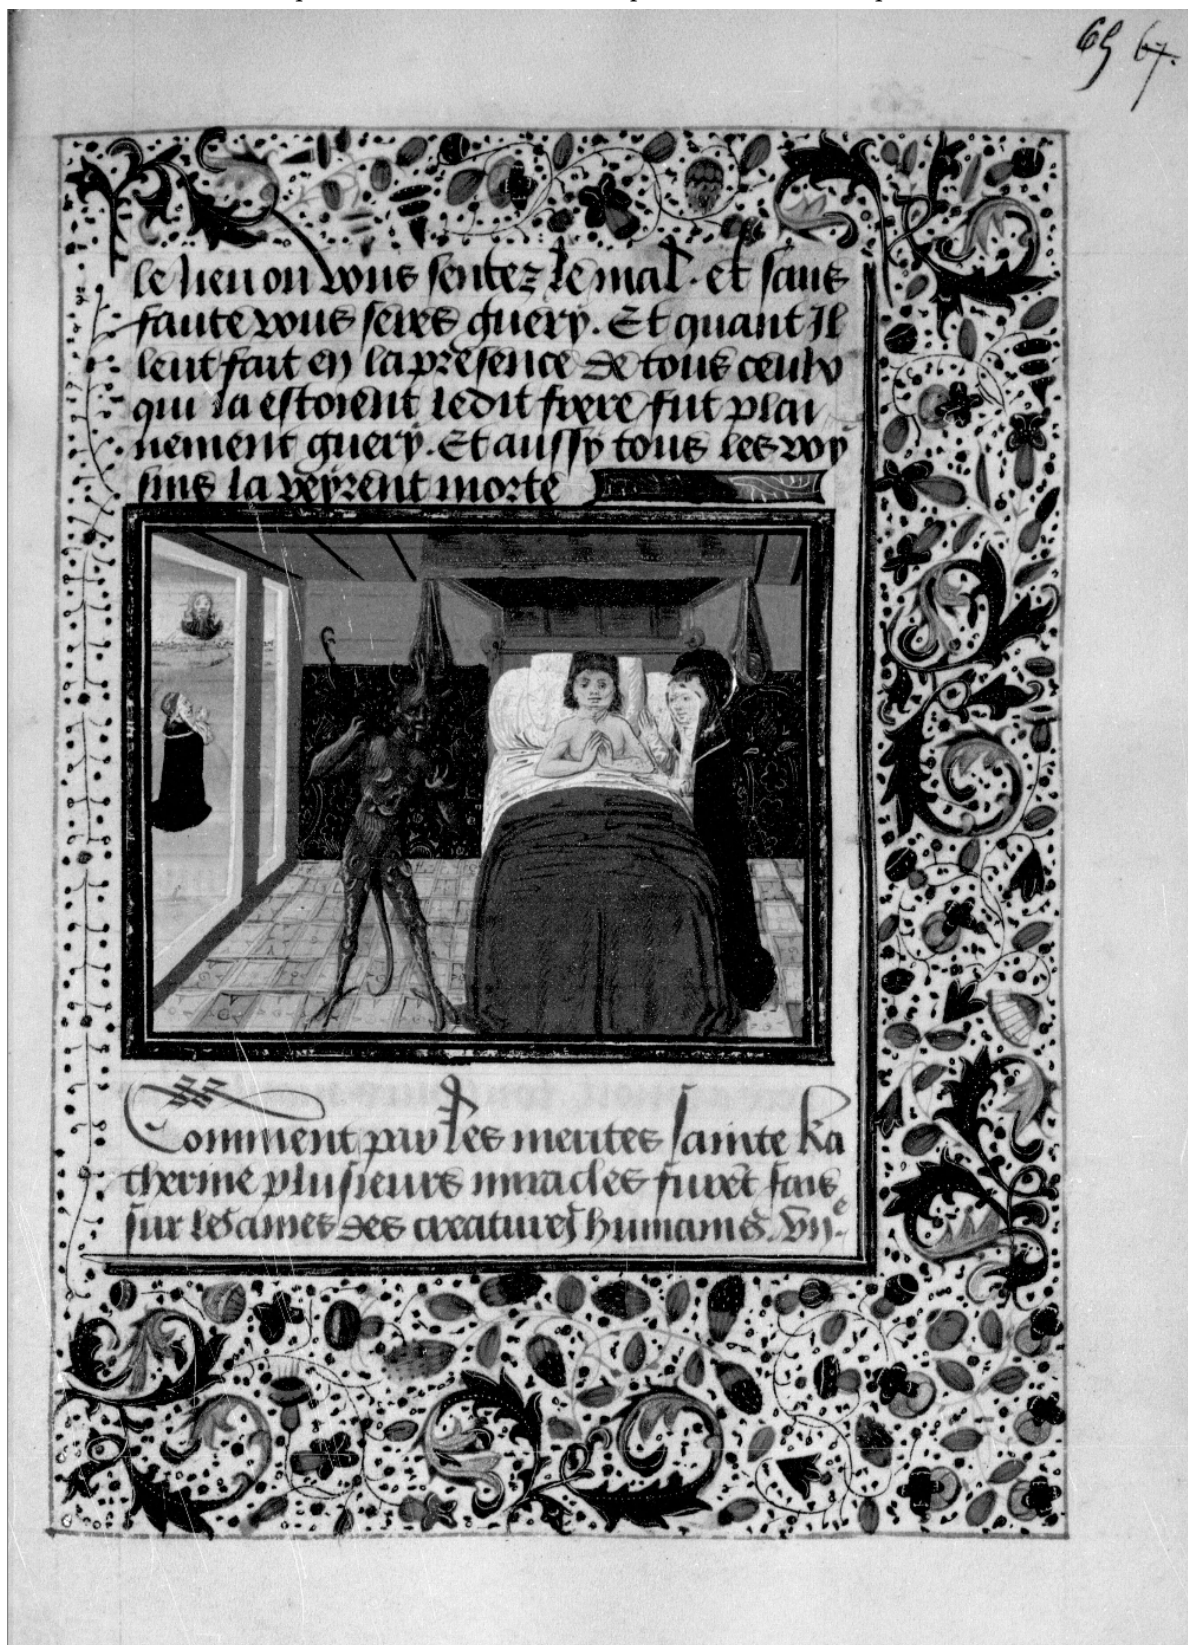 65 67.
le lieu ou vous sentez le mal. et sans
faute vous seres guery. Et quant Il
leut fait en la presence de tous ceulx
qui la estoient ledit frere fut plai
nement guery. Et aussy tous les voy
sins la veyrent morte
Comment par les merites sainte ka
therine plusieurs miracles furẽt fais
sur les ames des creatures humaines. vijᵉ